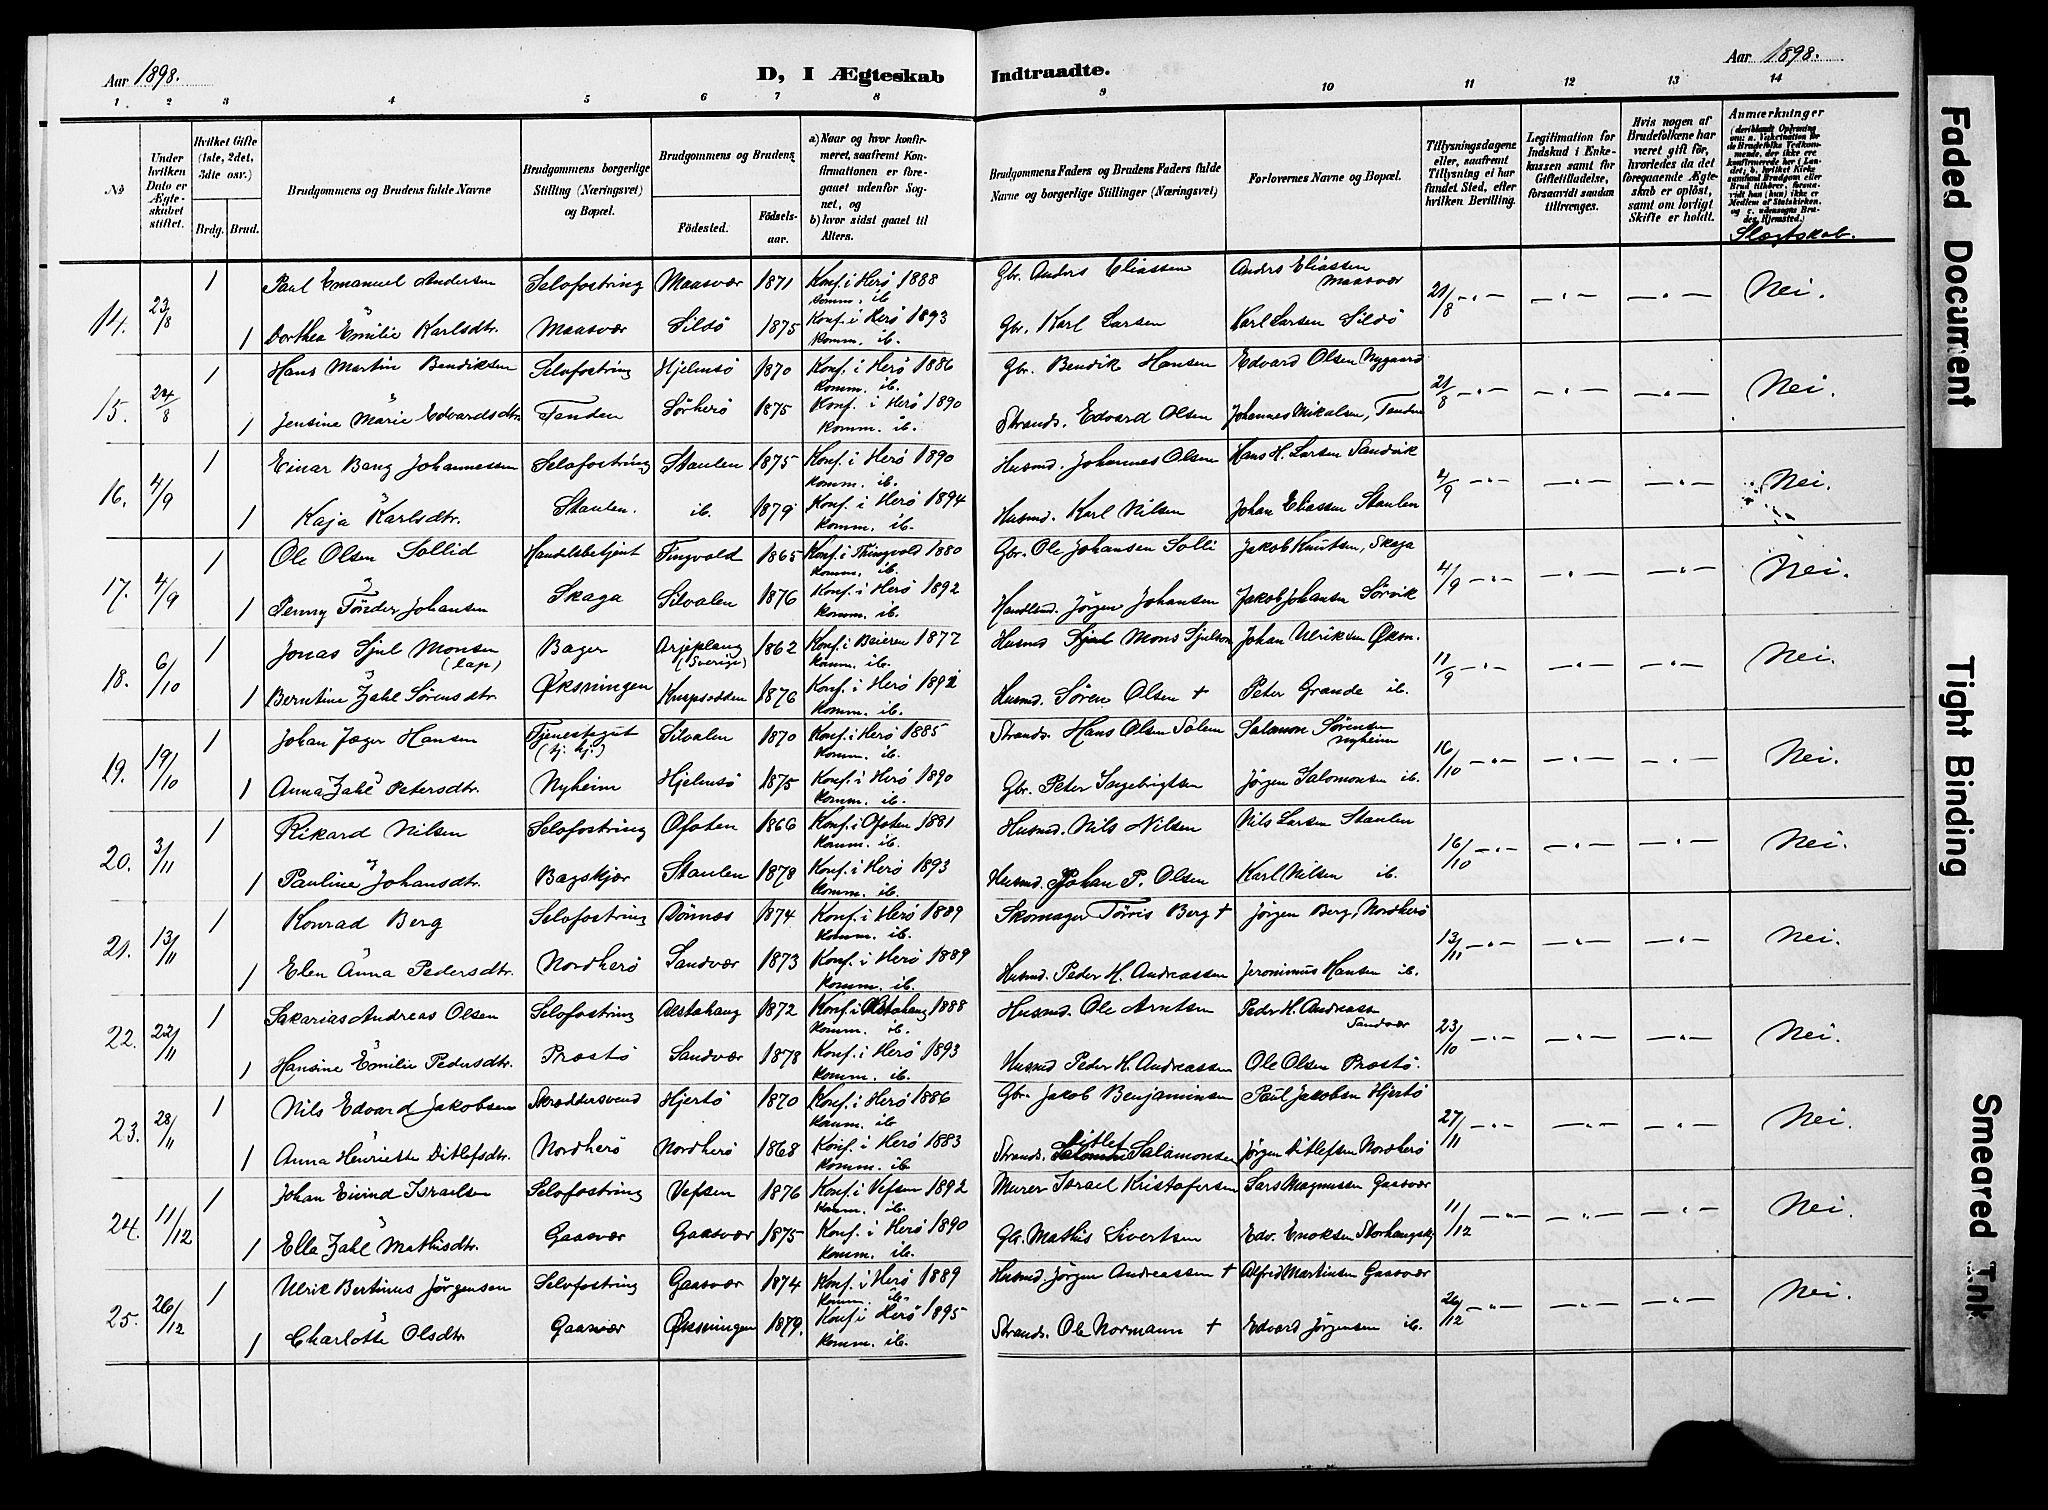 Aar 1898.
D, I Ægteskab Indtraadte.
Aar 1898.
1. 2 3 4 5 6 7 8 9 10 11 12 13 14
No
Under hvilken Dato er Ægteskabet stiftet.
Hvilket Gifte (1ste, 2det, 3die osv.)
Brdg. Brud.
Brudgommens og Brudens fulde Navne
Brudgommens borgerlige Stilling (Næringsvei) og Bopæl.
Brudgommens og Brudens
Födested.
Födselsaar.
a) Naar og hvor konfirmeret, saafremt Konfirmationen er foregaaet udenfor Sognet, og
b) hvor sidst gaaet til Alters.
Brudgommens Faders og Brudens Faders fulde Navne og borgerlige Stillinger (Næringsvei)
Forlovernes Navne og Bopæl.
Tillysningsdagene eller, saafremt Tillysning ei har fundet Sted, efter hvilken Bevilling.
Legitimation for Indskud i Enkekassen samt for Giftetilladelse, forsaavidt saadan tiltrænges.
Hvis nogen af Brudefolkene har været gift för, hvorledes da det foregaaende Ægteskab er oplöst, samt om lovligt Skifte er holdt.
Anmærkninger
(deriblandt Oplysning om: a. Vakcination for de Brudefolks Vedkommende, der ikke ere konfirmerede her i Landet; b. hvilket Kirkesamfund Brudgom eller Brud tilhörer, forsaavidt han (hun) ikke er Medlem af Statskirken, og c. udensogns Brudes Hjemsted.)
Slægtskab.
14. 23/8 1 Paul Emanuel Andersen Selvfostring Maasvær 1871 Konf. i Herö 1888 Gbr. Anders Eliassen Anders Eliassen Maasvær 21/8 — „ — — „ — — „ — Nei.
Komm. ib
1 Dorthea Emilie Karlsdtr. Maasvær Sildö 1875 Konf. i Herö 1893 Gbr. Karl Larsen Karl Larsen Sildö
Komm. ib.
15. 24/8 1 Hans Martin Bendiksen Selvfostring Hjelmsö 1870 Konf. i Herö 1886 Gbr. Bendik Hansen Edvard Olsen Nygaard 21/8 — „ — — „ — — „ — Nei.
Komm. ib.
1 Jensine Marie Edvardsdtr. Tenden Sörherö 1875 Konf. i Herö 1890 Strands. Edvard Olsen Johannes Mikalsen, Tenden
Komm. ib.
16. 4/9 1 Einar Bang Johannessen Selvfostring Staulen 1875 Konf. i Herö 1890 Husmd. Johannes Olsen Hans H. Larsen Sandvik 4/9 — „ — — „ — — „ — Nei.
Komm. ib.
1 Kaja Karlsdtr. Staulen. ib. 1879 Konf. i Herö 1894 Husmd. Karl Nilsen Johan Eliassen Staulen
Komm. ib.
17. 4/9 1 Ole Olsen Sollid Handelsbetjent Tingvold 1865 Konf. i Thingvold 1880 Gbr. Ole Johansen Solli Jakob Knutsen, Skaga 4/9 — „ — — „ — — „ — Nei.
Komm. ib.
1 Penny Tönder Johansen Skaga Silvalen 1876 Konf. i Herö 1892 Handlsmd. Jörgen Johansen Jakob Johansen Sörvik
Komm. ib.
18. 6/10 1 Jonas Sjul Monsen (lap) Bager Arjeplaug (Sverige) 1862 Konf. i Beieren 1877 Husmd Mons Sjulson Johan Ulriksen Øksn. 11/9 — „ — — „ — — „ — Nei.
Komm. ib.
1 Berntine Zahl Sörensdtr. Øksningen 1876 Konf. i Herö 1892 Husmd. Sören Olsen + Peter Grande ib.
Komm. ib.
19. 19/10 1 Johan Jæger Hansen Tjenestegut (tj. hj.) Silvalen 1870 Konf. i Herö 1885 Strands. Hans Olsen Salen Salamon Sörensen Nyheim 16/10 — „ — — „ — — „ — Nei.
Komm. ib.
1 Anna Zahl Petersdtr. Nyheim Hjelmsö 1875 Konf. i Herö 1890 Gbr. Peter Ingebrigtsen Jörgen Salomonsen ib.
Komm. ib.
20. 3/11 1 Rikard Nilsen Selvfostring Ofoten 1866 Konf. i Ofoten 1881 Husmd. Nils Nilsen Nils Larsen Staulen 16/10 — „ — — „ — — „ — Nei.
Komm. ib.
1 Pauline Johansdtr. Bagskjær Staulen 1878 Konf. i Herö 1893 Husmd. Johan P. Olsen Karl Nilsen ib.
Komm. ib.
21. 13/11 1 Konrad Berg Selvfostring Dönnes 1874 Konf. i Herö 1889 Skomager Törris Berg + Jörgen Berg, Nordherö 13/11 — „ — — „ — — „ — Nei.
Komm. ib.
1 Elen Anna Pedersdtr. Nordherö Sandvær 1873 Konf. i Herö 1889 Husmd. Peder H. Andreassen Jeronimus Hansen ib.
Komm. ib.
22. 22/11 1 Sakarias Andreas Olsen Selvfostring Alstahaug 1872 Konf. i Alstahaug 1888 Husmd. Ole Arntsen Peder H. Andreass. Sandvær 23/10 — „ — — „ — — „ — Nei.
Komm. ib.
1 Hansine Emilie Pedersdtr. Præstö Sandvær 1878 Konf. i Herö 1893 Husmd Peder H. Andreassen Ole Olsen Præstö.
Komm. ib.
23. 28/11 1 Nils Edvard Jakobsen Skræddersvend Hjertö 1870 Konf. i Herö 1886 Gbr. Jakob Benjaminsen Paul Jakobsen Hjertö 27/11 — „ — — „ — — „ — Nei.
Komm. ib.
1 Anna Henriette Ditlefsdtr. Nordherö Nordherö 1868 Konf. i Herö 1883 Strands. Ditlef Salamonsen Jörgen Ditlefsen Nordherö
Komm. ib
24. 11/12 1 Johan Eivind Israelsen Selvfostring Vefsen 1876 Konf. i Vefsen 1892 Murer Israel Kristofersen Lars Magnussen Gaasvær 11/12 — „ — — „ — — „ — Nei.
Komm. ib.
1 Ella Zahl Mathisdtr. Gaasvær Gaasvær 1875 Konf. i Herö 1890 Gbr. Mathis Sivertsen Edv. Enoksen
Komm. ib.
25. 26/12 1 Ulrik Bertinus Jörgensen Selvfostring Gaasvær 1874 Konf. i Herö 1889 Husmd. Jörgen Andreassen + Alfred Martinsen Gaasvær 26/12 — „ — — „ — — „ — Nei.
Komm. ib.
1 Charlotte Olsdtr. Gaasvær Øksningen 1879. Konf. i Herö 1895 Strands. Ole Normann + Edvard Jörgensen ib.
Komm. ib.
Faded Document
Tight Binding
Smeared Ink